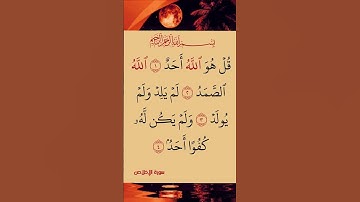 بِسْمِ اللَّهِ الرَّحْمَٰنِ الرَّحِيمِ
قُلْ هُوَ ٱللَّهُ أَحَدٌ ١ ٱللَّهُ
ٱلصَّمَدُ ٢ لَمْ يَلِدْ وَلَمْ
يُولَدْ ٣ وَلَمْ يَكُن لَّهُۥ
كُفُوًا أَحَدٌۢ ٤
سورة الإخلاص